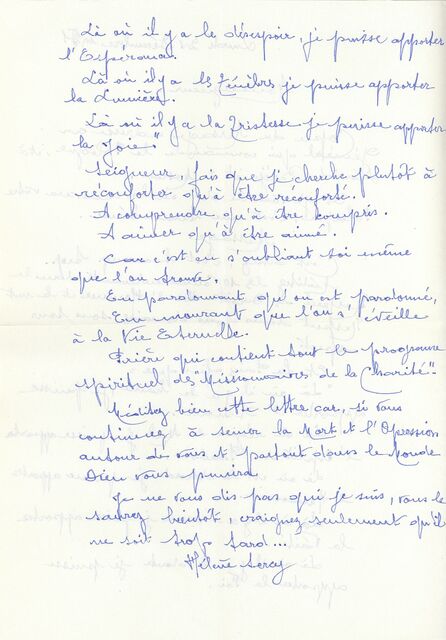 Là où il y a le désespoir, je puisse apporter
l'Espérance.
Là où il y a les Ténèbres je puisse apporter
la Lumière.
Là où il y a la Tristesse je puisse apporter
la Joie."
Seigneur, fais que je cherche plutôt à
réconforter qu'à être réconforté.
A comprendre qu'à être compris.
A aimer qu'à être aimé.
Car c'est en s'oubliant soi même
que l'on trouve.
En pardonnant qu'on est pardonné,
En mourant que l'on s'éveille
à la Vie Eternelle.
Prière qui contient tout le programme
spirituel des "Missionnaires de la Charité".
Méditez bien cette lettre car, si vous
continuez à semer la Mort et l'Opression
autour de vous et partout dans le Monde
Dieu vous punira.
Je ne vous dis pas qui je suis, vous le
saurez bientôt, craignez seulement qu'il
ne soit trop tard...
Hélène